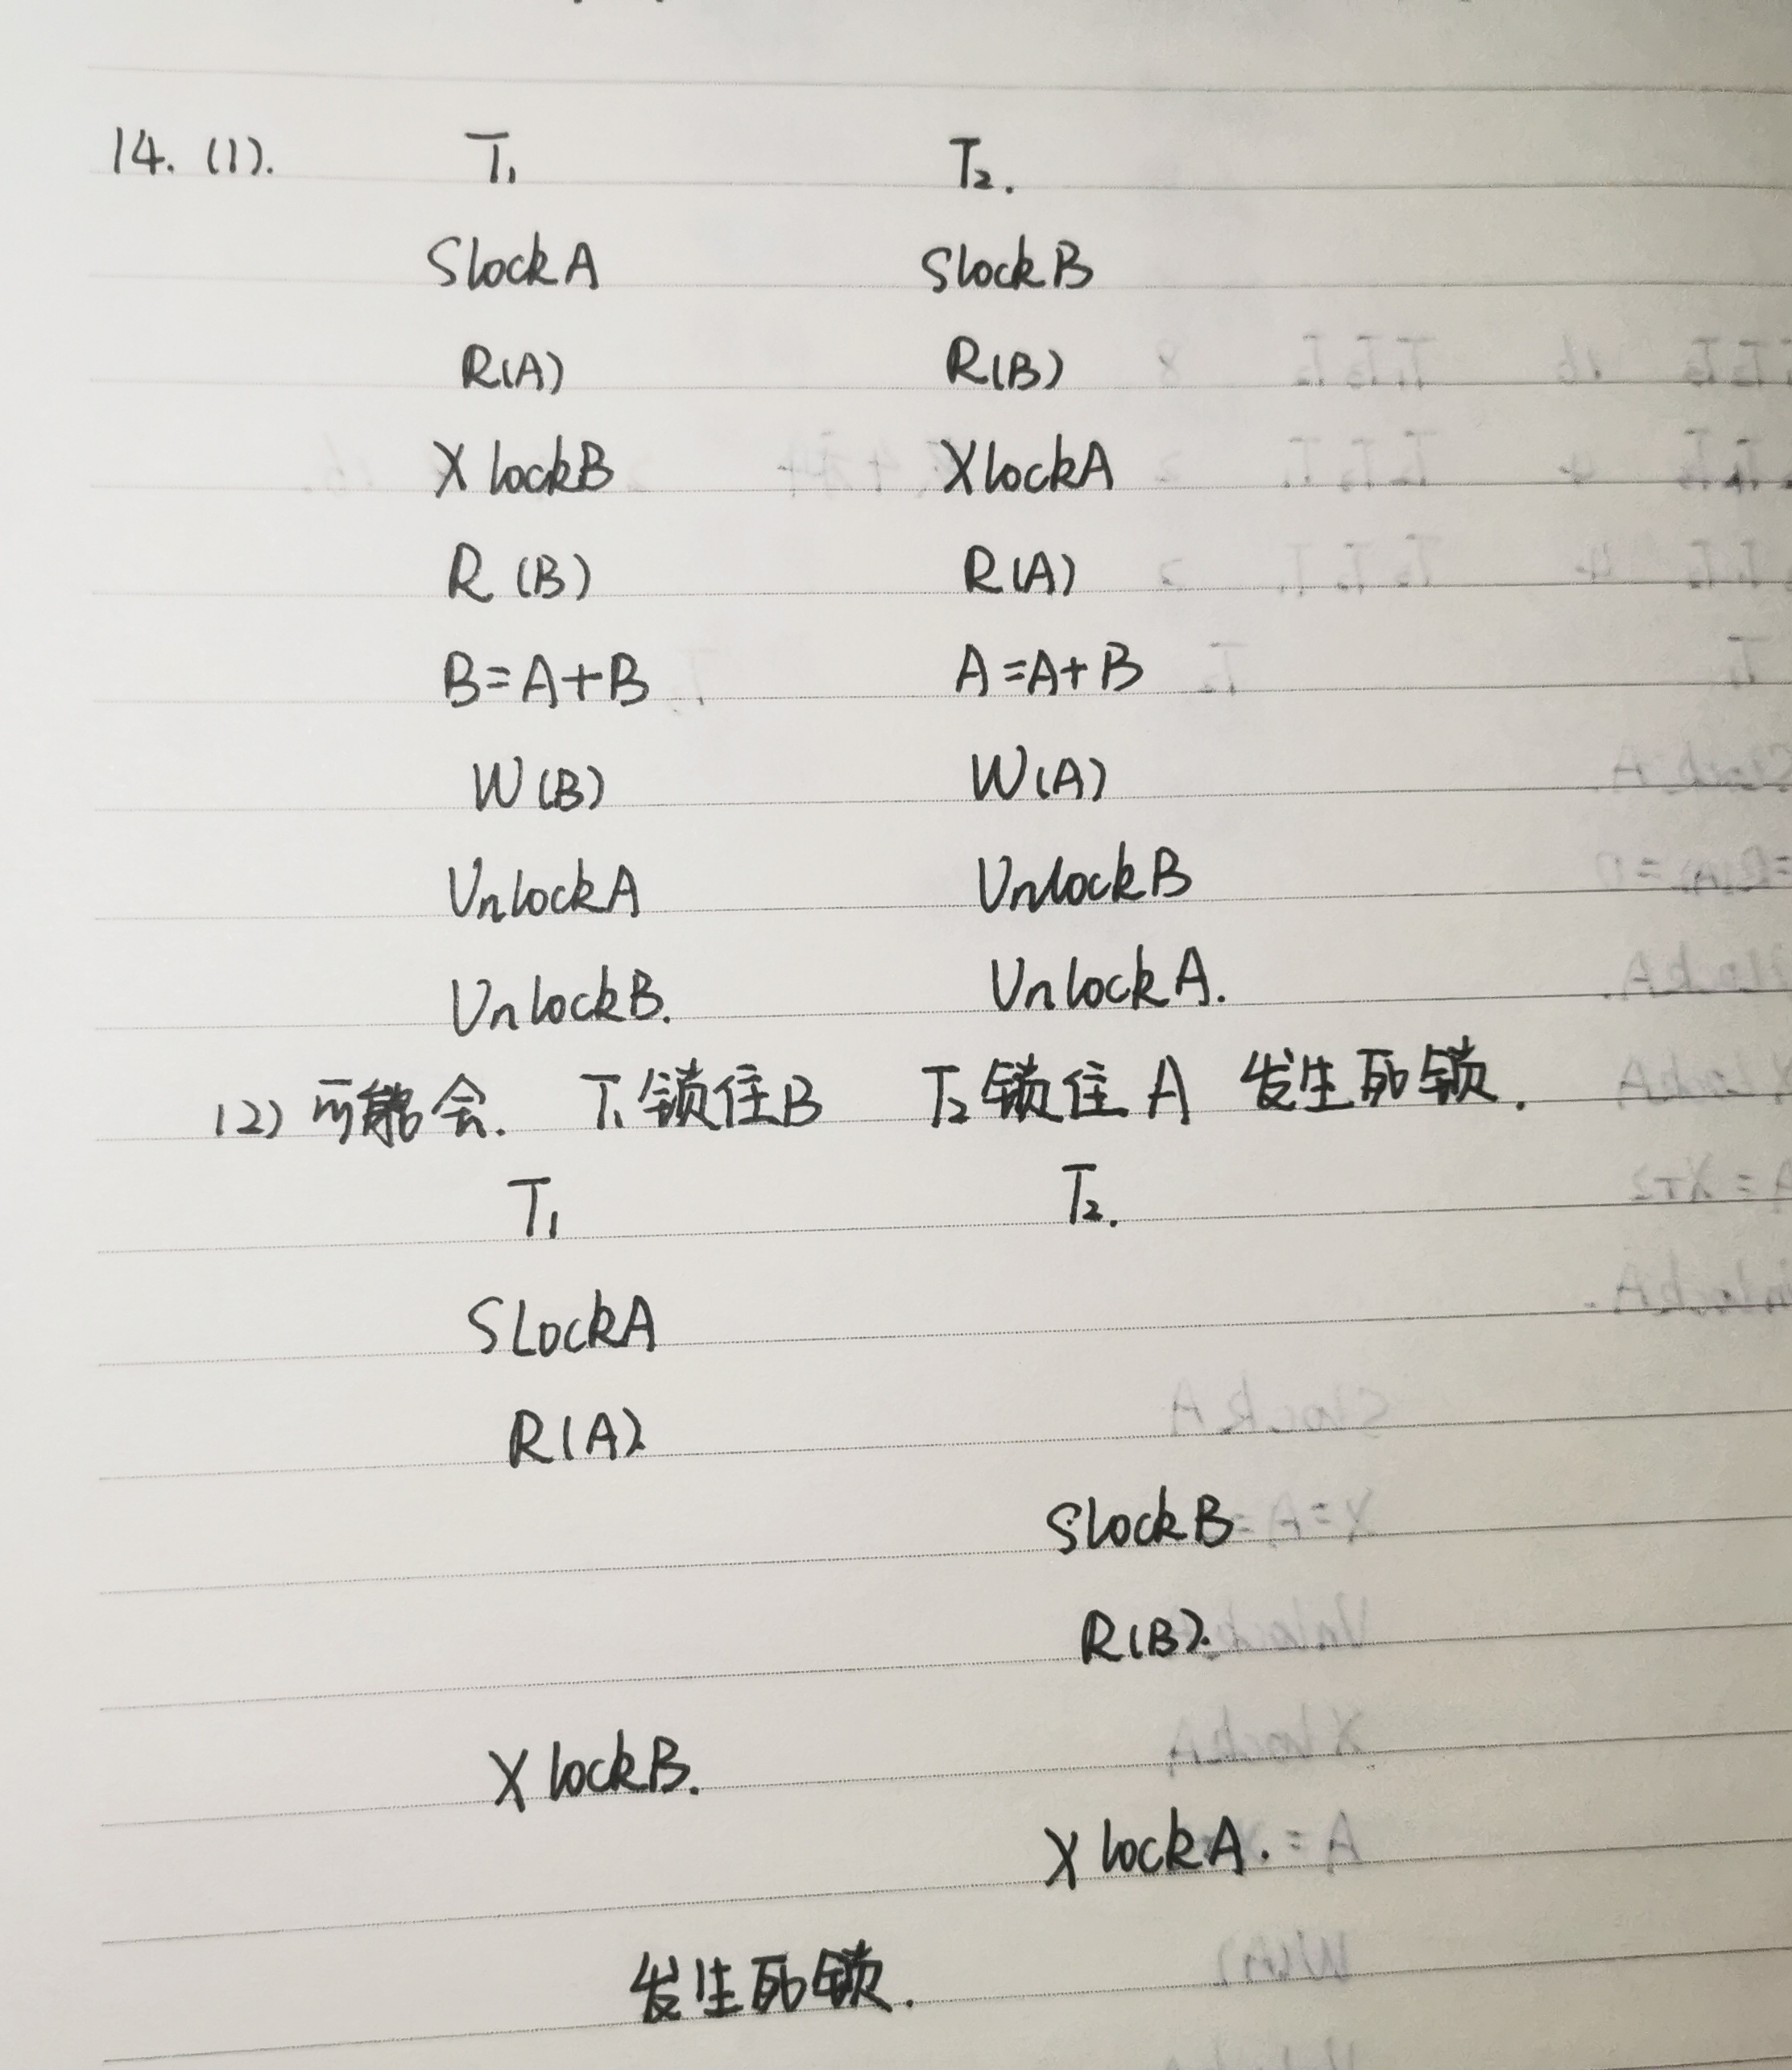 14. (1). T₁ T₂.
SlockA SlockB
R(A) R(B)
XlockB XlockA
R(B) R(A)
B=A+B A=A+B
W(B) W(A)
UnlockA UnlockB
UnlockB. UnlockA.
(2) 可能会. T₁锁住B T₂锁住A 发生死锁.
T₁ T₂.
SLockA
R(A)
SlockB
R(B).
XlockB.
XlockA.
发生死锁.